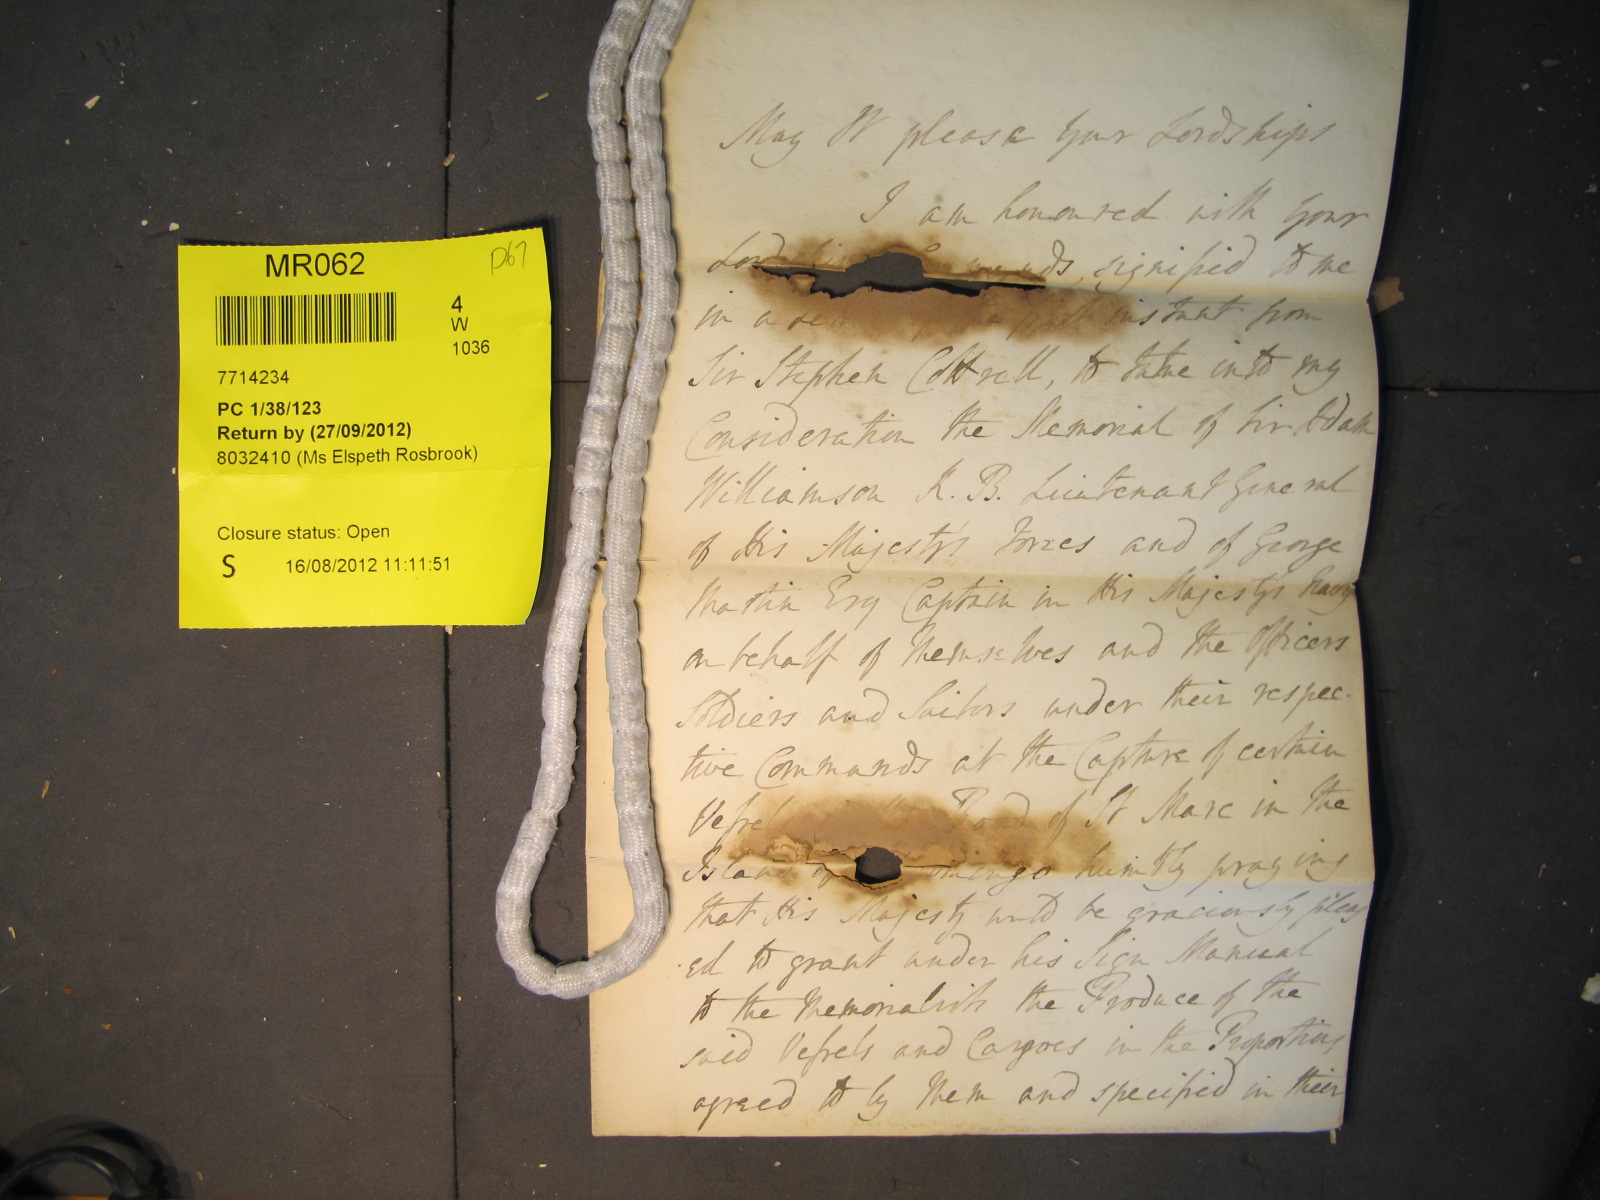 MR062
p67
4
W
1036
7714234
PC 1/38/123
Return by (27/09/2012)
8032410 (Ms Elspeth Rosbrook)
Closure status: Open
S 16/08/2012 11:11:51
May It please Your Lordships
I am honoured with Your
signified to me
in a instant from
Sir Stephen Cottrell, to take into my
Consideration the Memorial of Sir Adam
Williamson K. B. Lieutenant General
of His Majesty's Forces and of George
Martin Esq Captain in His Majestys Navy
on behalf of themselves and the Officers
Soldiers and Sailors under their respec-
tive Commands at the Capture of certain
Road of St Marc in the
Island of humbly praying
that His Majesty would be graciously pleas
ed to grant under his Sign Manual
to the Memorialists the Produce of the
said Vessels and Cargoes in the Proportions
agreed to by them and specified in their